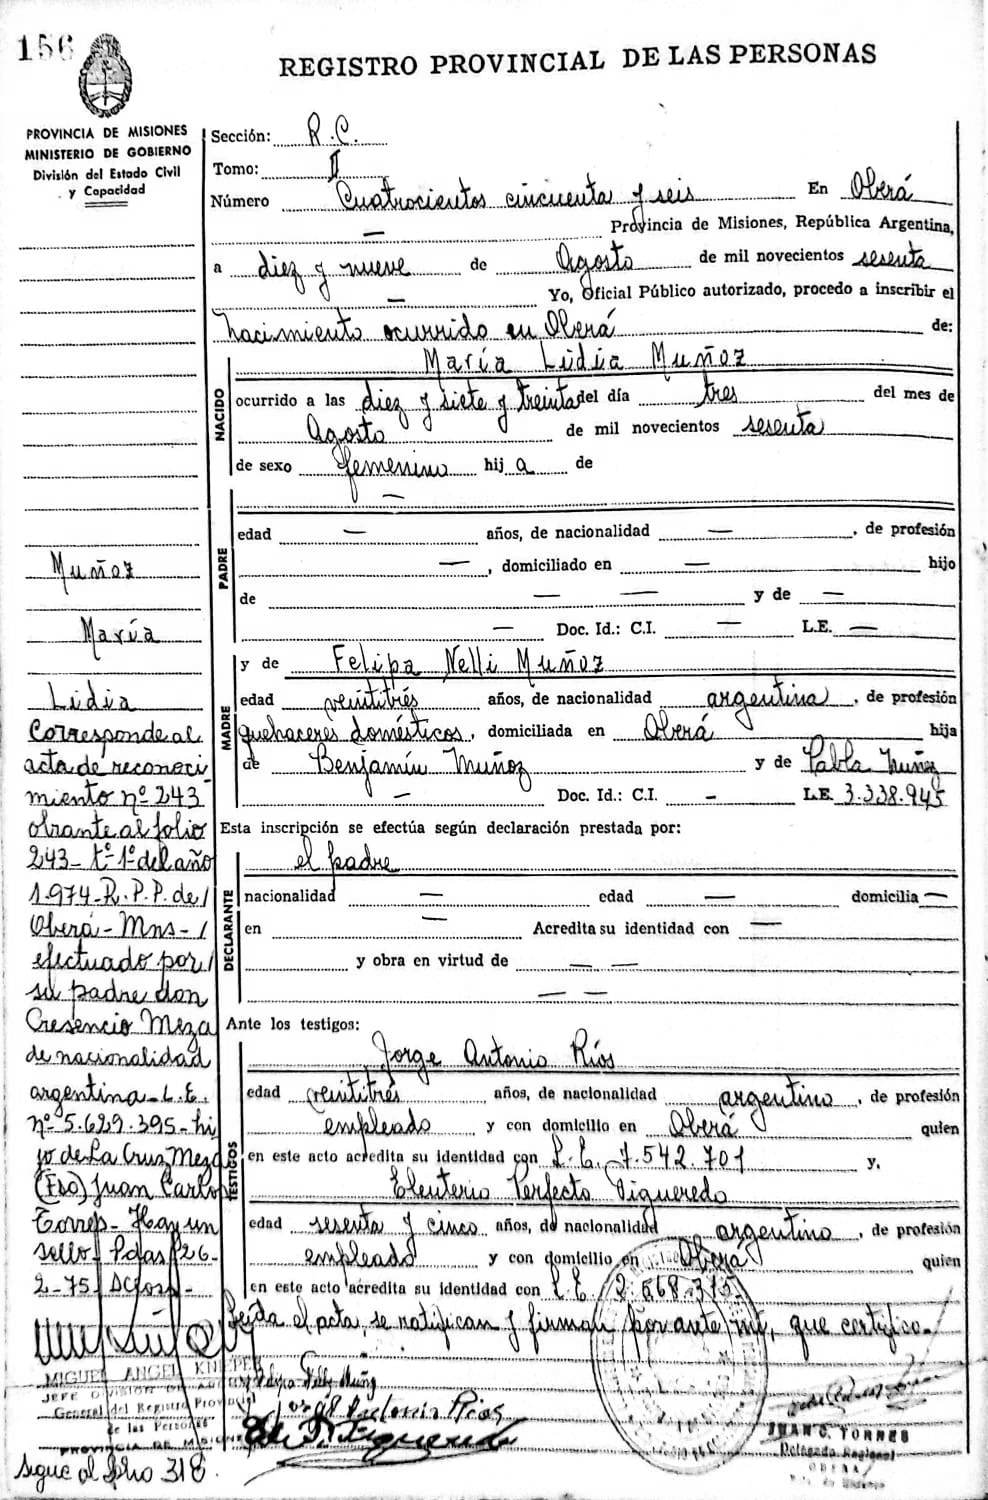 156
REGISTRO PROVINCIAL DE LAS PERSONAS
PROVINCIA DE MISIONES
MINISTERIO DE GOBIERNO
División del Estado Civil
y Capacidad
Sección: R.C.
Tomo: II
Número Cuatrocientos cincuenta y seis En Oberá
— Provincia de Misiones, República Argentina,
a diez y nueve de Agosto de mil novecientos sesenta
— Yo, Oficial Público autorizado, procedo a inscribir el
nacimiento ocurrido en Oberá de:
NACIDO
María Lidia Muñoz
ocurrido a las diez y siete y treinta del día tres del mes de
Agosto de mil novecientos sesenta
de sexo femenino hij a de
—
PADRE
edad — años, de nacionalidad — , de profesión
— , domiciliado en — hijo
de — — y de —
— Doc. Id.: C.I. — L.E. —
MADRE
y de Felipa Nelli Muñoz
edad veintitrés años, de nacionalidad argentina , de profesión
quehaceres domésticos, domiciliada en Oberá hija
de Benjamín Muñoz y de Pabla Nuñez
— Doc. Id.: C.I. — L.E. 3.338.945
Esta inscripción se efectúa según declaración prestada por:
DECLARANTE
el padre
nacionalidad — edad — domicilia —
en — Acredita su identidad con —
y obra en virtud de — —
— —
Ante los testigos:
TESTIGOS
Jorge Antonio Ríos
edad veintitrés años, de nacionalidad argentino , de profesión
empleado y con domicilio en Oberá quien
en este acto acredita su identidad con L.E. 7.542.701 y,
Eleuterio Perfecto Figueredo
edad sesenta y cinco años, de nacionalidad argentino , de profesión
empleado y con domicilio en Oberá quien
en este acto acredita su identidad con L.E. 2.668.313
Leída el acta, se ratifican y firman por ante mí, que certifico.
Muñoz
María
Lidia
Corresponde al
acta de reconoci
miento nº 243
obrante al folio
243 - tº 1º del año
1.974 - R.P.P. de/
Oberá - Mns - /
efectuado por/
su padre don
Cresencio Meza
de nacionalidad
argentina - L.E.
nº 5.629.395 - hi
jo de La Cruz Meza
(Fdo) Juan Carlos
Torres - Hay un
sello. Pdas/26-
2-75
MIGUEL ANGEL
JEFE DIVISION
General del Registro Provincial
de las Personas
PROVINCIA DE MISIONES
Sigue al folio 318.
Nelly Muñoz
Antonio Rios
Figueredo
JUAN C. TORRES
Delegado Regional
OBERA